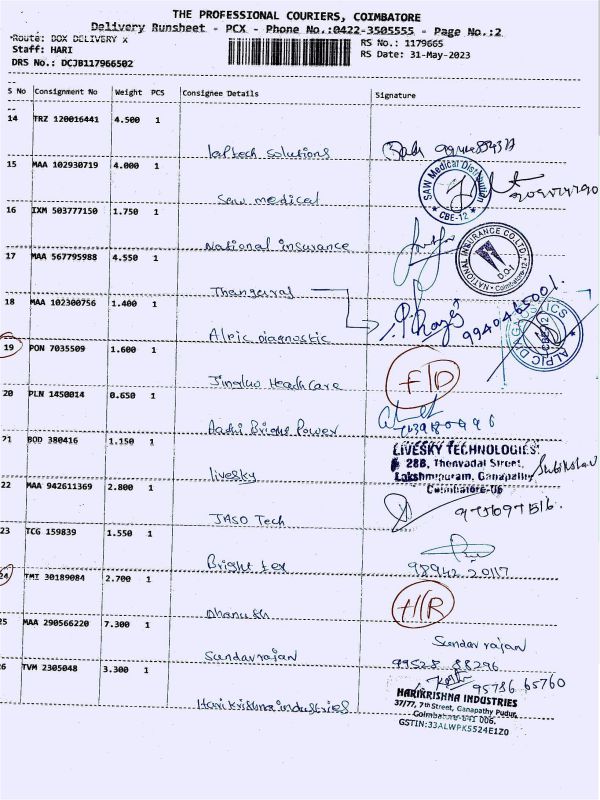 THE PROFESSIONAL COURIERS, COIMBATORE
Delivery Runsheet - PCX - Phone No.:0422-3505555 - Page No.:2
Route: BOX DELIVERY X
RS No.: 1179665
Staff: HARI
RS Date: 31-May-2023
DRS No.: DCJB117966502
S No Consignment No Weight PCS Consignee Details Signature
14 TRZ 120016441 4.500 1
laptech solutions
15 MAA 102930719 4.000 1
Saw medical
SAW Medical Distribution
* CBE-12 *
16 IXM 503777150 1.750 1
National insurance
NATIONAL INSURANCE CO.LTD.
Coimbatore-12
17 MAA 567795988 4.550 1
Thangaraj
18 MAA 102300756 1.400 1
Alpic diagnostic
9940465001.
ALPIC DIAGNOSTICS
CBE-12
19 PON 7035509 1.600 1
HeathCare
F/D
20 PLN 1450014 0.650 1
Aadhi Bright Power
21 BOD 380416 1.150 1
livesky
LIVESKY TECHNOLOGIES
28B, Thenvadal Street,
Lakshmipuram, Ganapathy
Coimbatore-06
22 MAA 942611369 2.800 1
JASO Tech
23 TCG 159839 1.550 1
Bright tex
98942 20117
24 TMT 30189084 2.700 1
Dhanush
H/R
25 MAA 290566220 7.300 1
Sundavrajan
Sundav rajan
99528 88296
26 TVM 2305048 3.300 1
Harikrishna industries
95786 65760
HARIKRISHNA INDUSTRIES
37/77, 7th Street, Ganapathy Pudur,
Coimbatore-641 006.
GSTIN:33ALWPK5524E1Z0